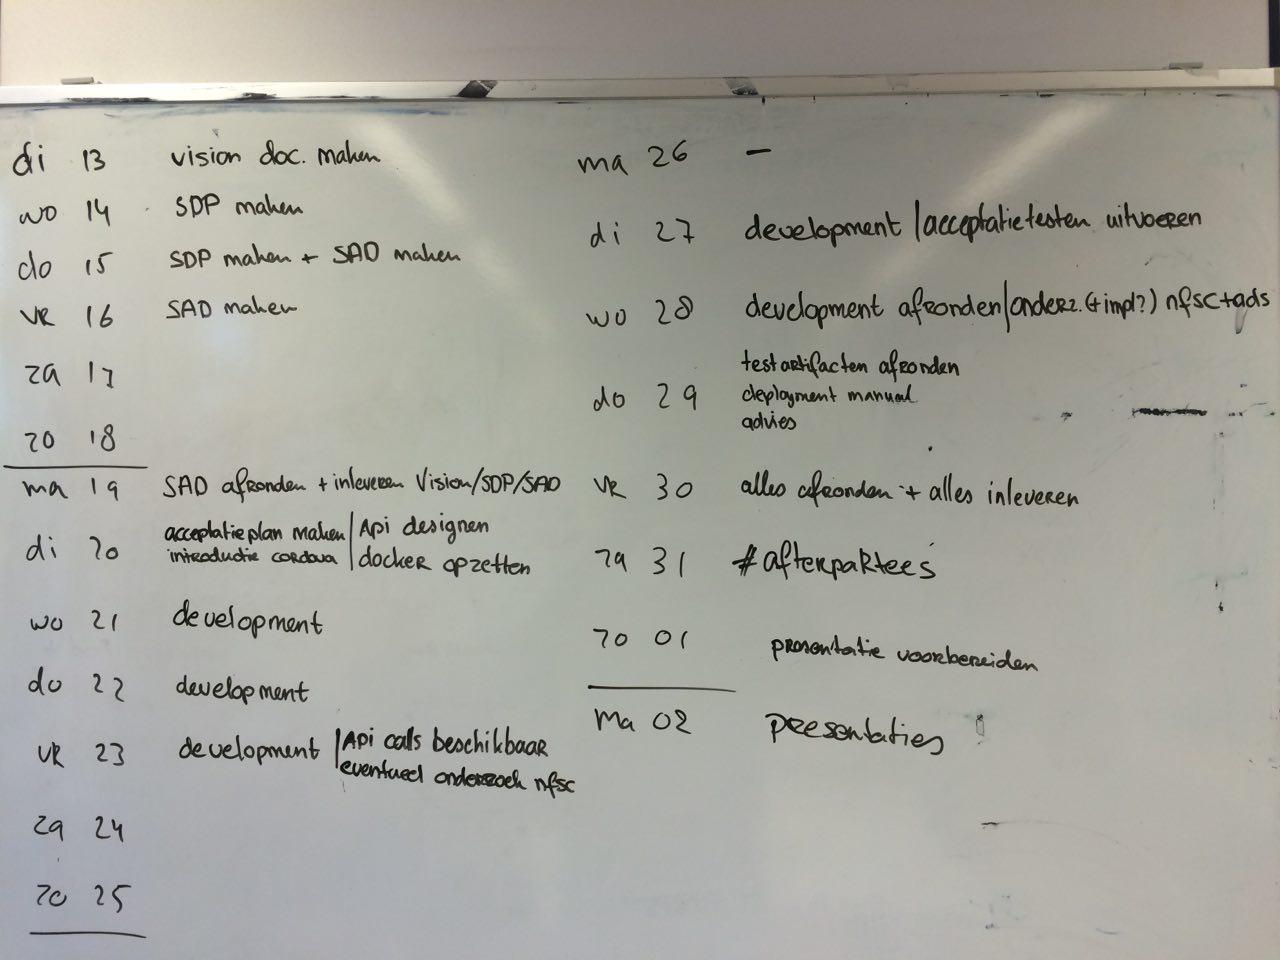 di 13 vision doc. maken
wo 14 SDP maken
do 15 SDP maken + SAD maken
VR 16 SAD maken
za 17
zo 18
ma 19 SAD afronden + inleveren Vision/SDP/SAD
di 20 acceptatieplan maken | Api designen
introductie cordova | docker opzetten
wo 21 development
do 22 development
VR 23 development | Api calls beschikbaar
eventueel onderzoek nfsc
za 24
zo 25
ma 26 —
di 27 development | acceptatietesten uitvoeren
wo 28 development afronden | onderz. (+ impl?) nfsc + ads
do 29 testartifacten afronden
deployment manual
advies
VR 30 alles afronden + alles inleveren
za 31 #afterpartees
zo 01 presentatie voorbereiden
ma 02 presentaties